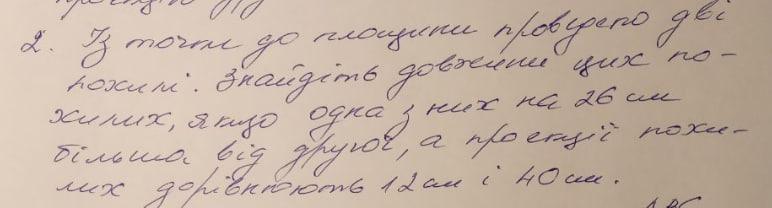 2. Із точки до площини проведено дві
похилі. Знайдіть довжини цих по-
хилих, якщо одна з них на 26 см
більша від другої, а проекції похи-
лих дорівнюють 12 см і 40 см.